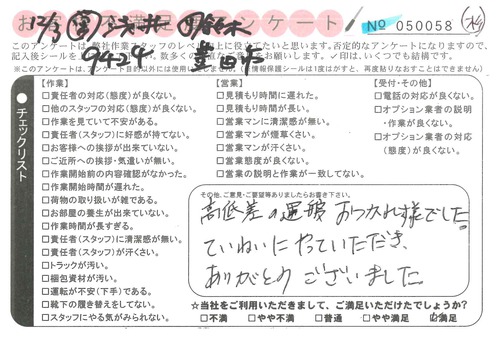 お客様不満足度アンケート
№ 050058
12/3
9424
このアンケートは、弊社作業スタッフのレベル向上に役立てたいと思います。否定的なアンケートになりますので、
※このアンケートは、アンケート目的以外には使用しません。(情報保護シールは1度はがすと、再度貼りなおすことはできません)
チェックリスト
【作業】
□責任者の対応(態度)が良くない。
□他のスタッフの対応(態度)が良くない。
□作業を見ていて不安がある。
□責任者(スタッフ)に好感が持てない。
□お客様への挨拶が出来ていない。
□ご近所への挨拶・気遣いが無い。
□作業開始前の内容確認がなかった。
□作業開始時間が遅れた。
□荷物の取り扱いが雑である。
□お部屋の養生が出来ていない。
□作業時間が長すぎる。
□責任者(スタッフ)に清潔感が無い。
□責任者(スタッフ)が汗くさい。
□トラックが汚い。
□梱包資材が汚い。
□運転が不安(下手)である。
□靴下の履き替えをしてない。
□スタッフにやる気がみられない。
【営業】
□見積もり時間に遅れた。
□見積もり時間が長い。
□営業マンに清潔感が無い。
□営業マンが煙草くさい。
□営業マンが汗くさい。
□営業態度が良くない。
□営業の説明と作業が一致してない。
【受付・その他】
□電話の対応が良くない。
□オプション業者の説明
・作業が良くない。
□オプション業者の対応
(態度)が良くない。
その他、ご意見・ご要望等ありましたらお書き下さい。
高低差の運搬 おつかれ様でした。
ていねいにやっていただき、
ありがとう ございました。
☆当社をご利用いただきまして、ご満足いただけたでしょうか?
□不満 □やや不満 □普通 □やや満足 ☑満足